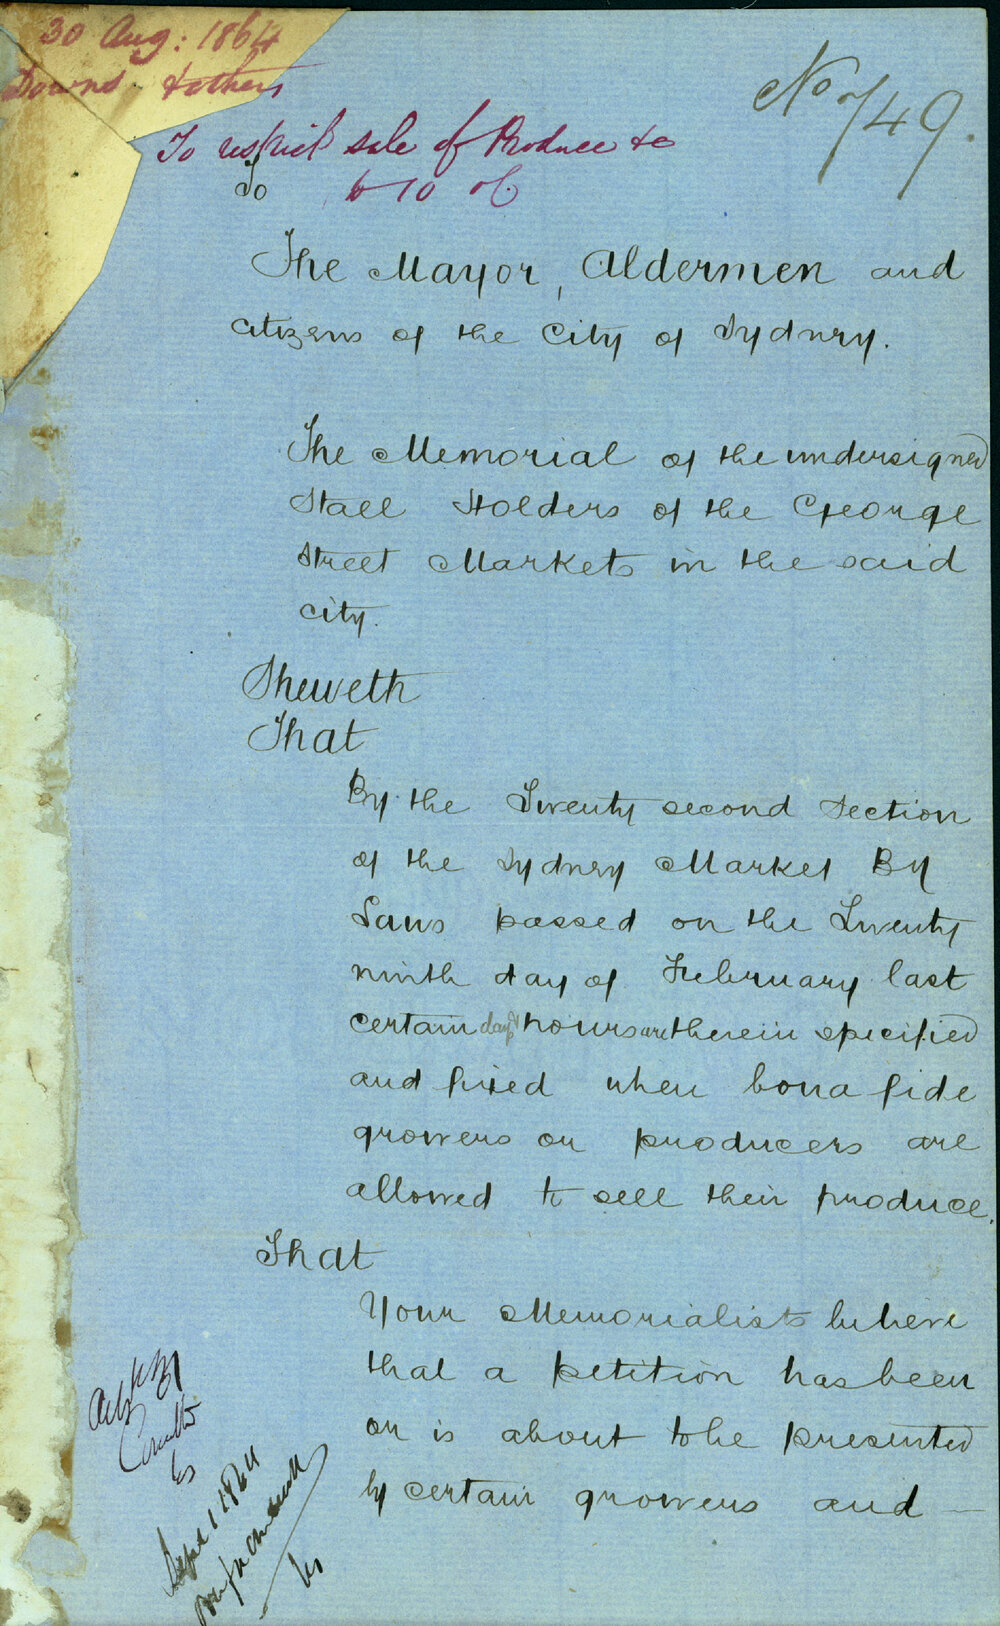 30 Aug: 1864
Downs & others
No 749.
To restrict sale of Produce &c
to 10 oC.
To
The Mayor, Aldermen and
citizens of the City of Sydney.
The Memorial of the undersigned
Stall Holders of the George
Street Markets in the said
city.
Sheweth
That
By the Twenty second Section
of the Sydney Market By
Laws passed on the Twenty
ninth day of February last
certain days & hours are therein specified
and fixed when bona fide
growers or producers are
allowed to sell their produce.
That
Your Memorialists believe
that a petition has been
or is about to be presented
by certain growers and
Sept 1 1864